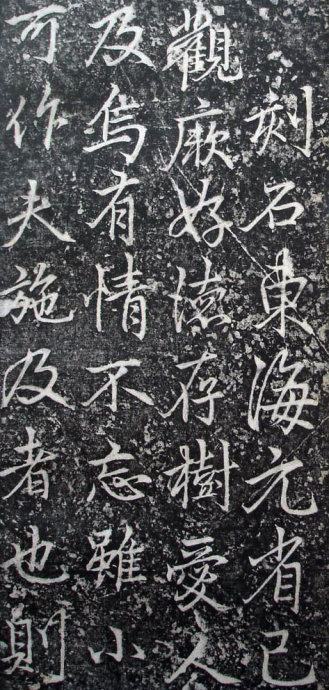 刻石東海元省己
觀厥好德存樹愛人
及烏有情不忘雖小
可作夫施及者也則